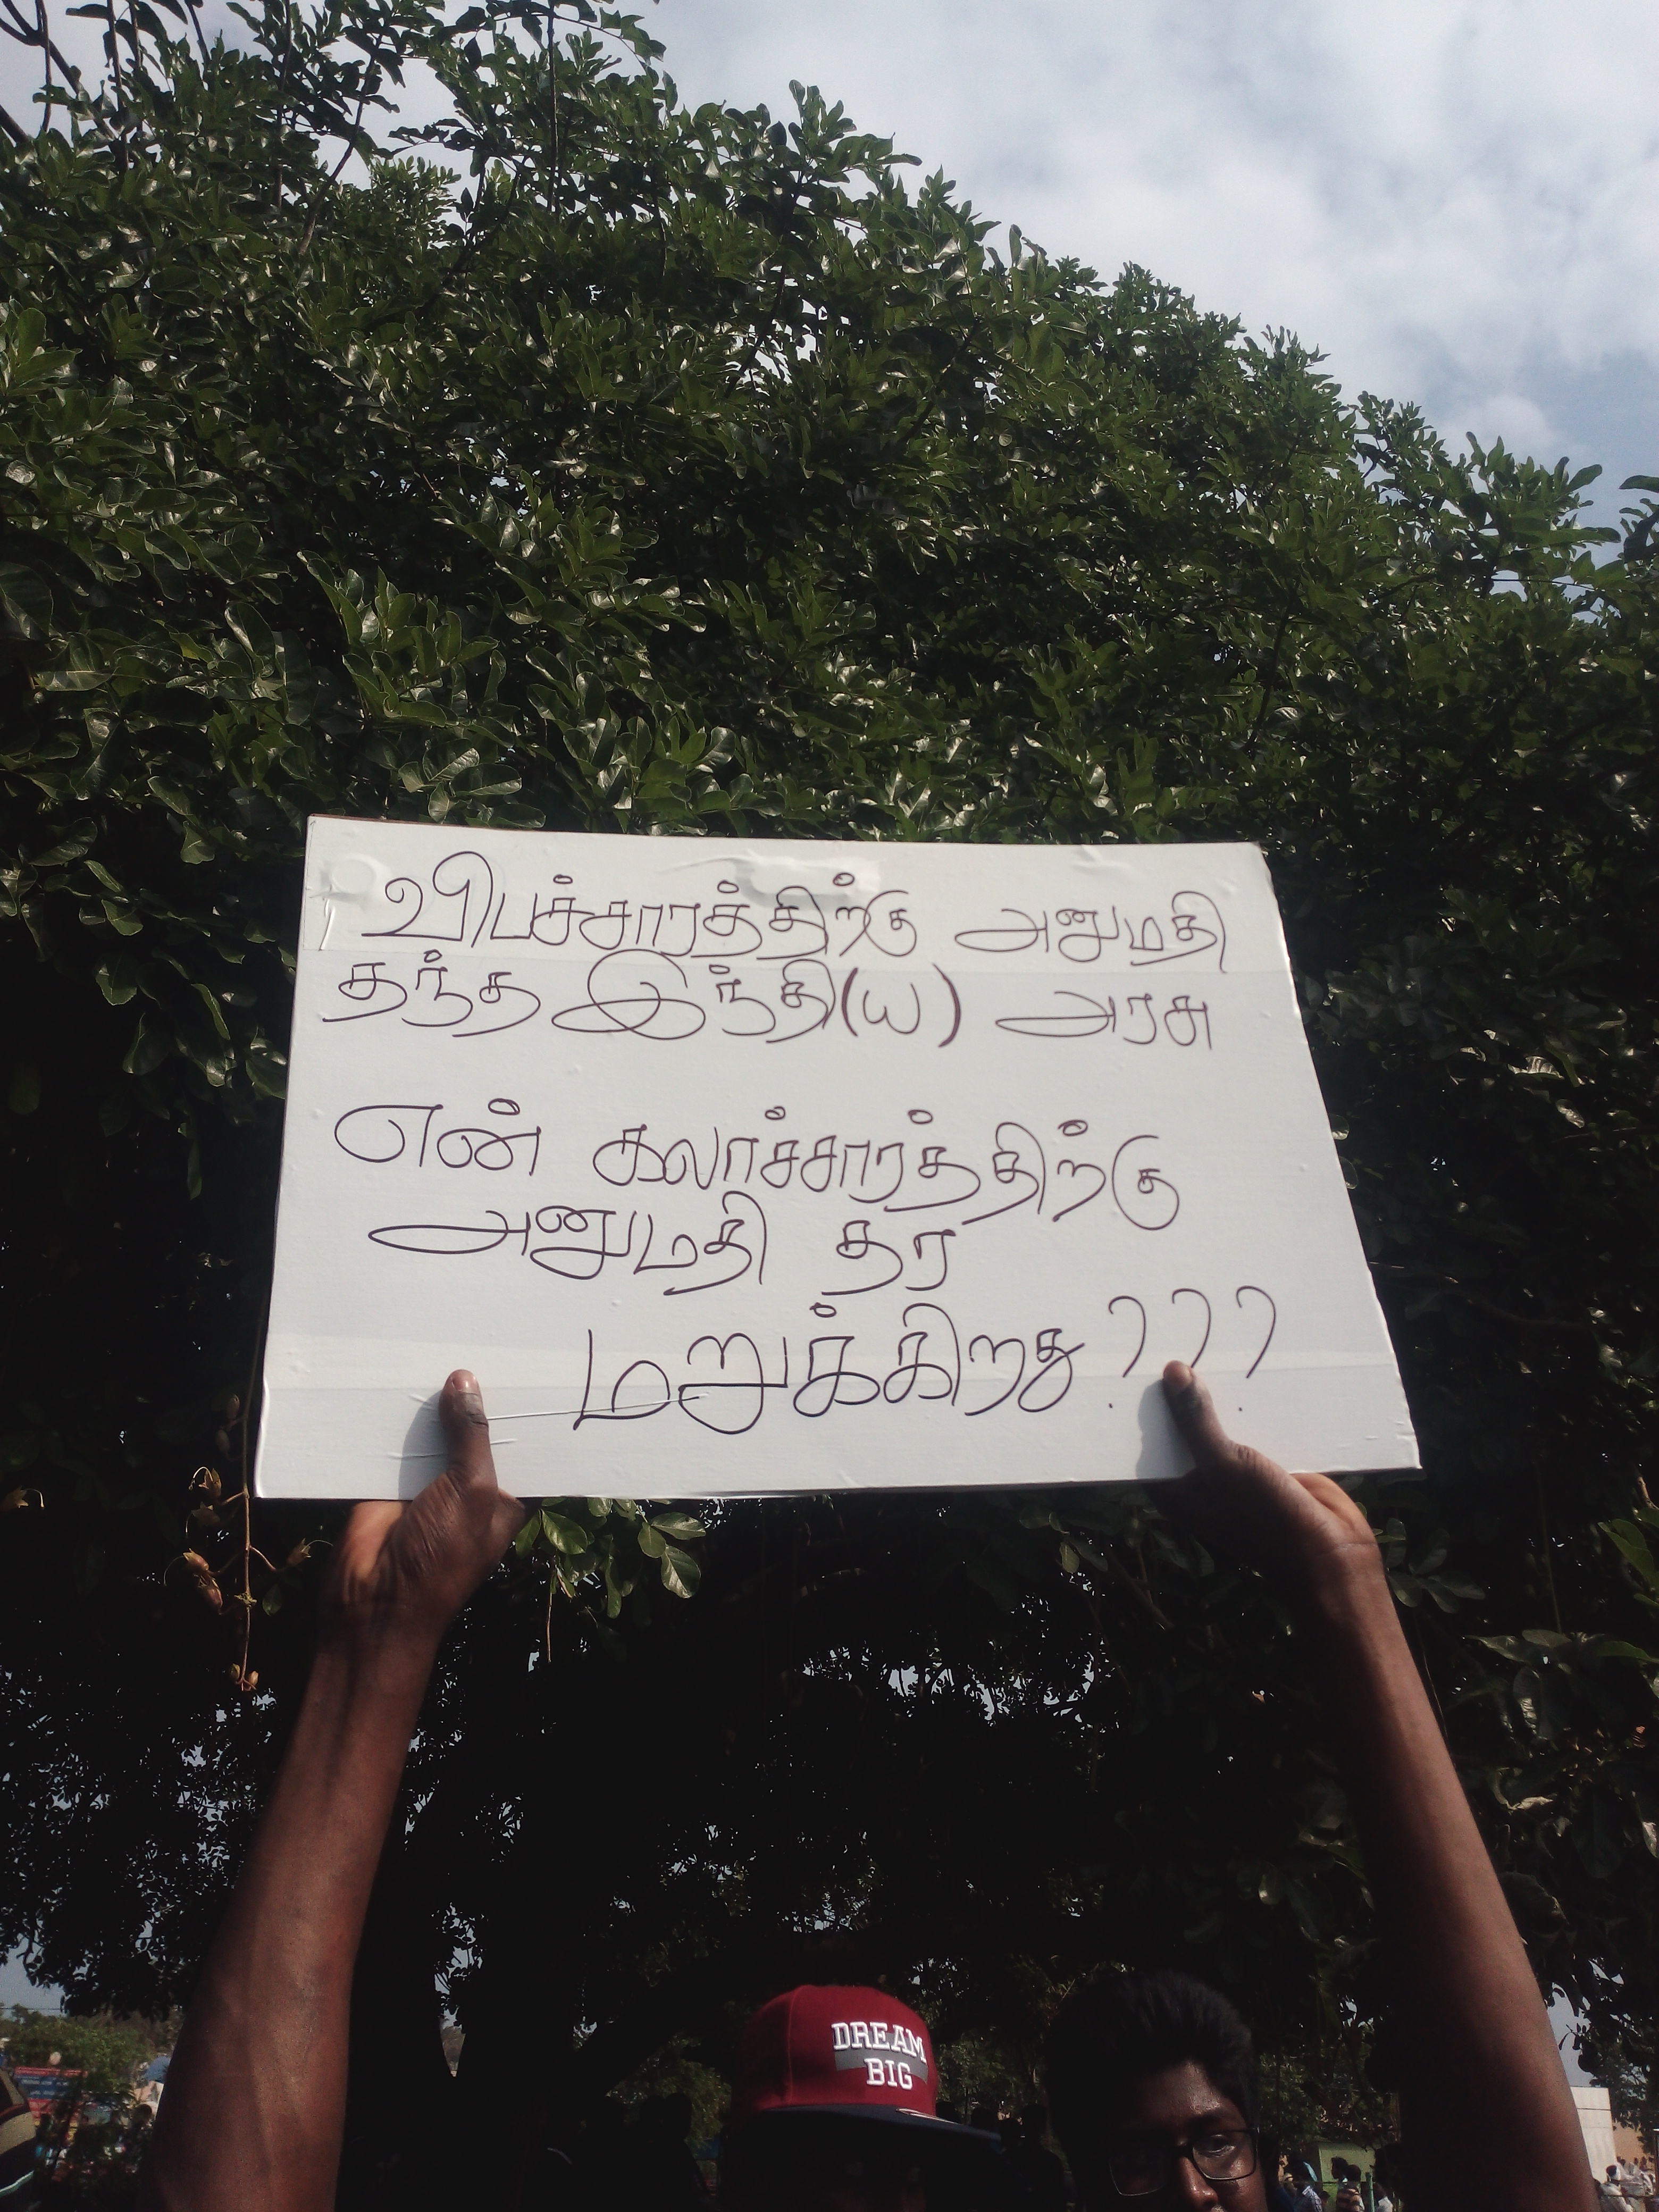 விபச்சாரத்திற்கு அனுமதி
தந்த இந்தி(ய) அரசு
என் கலாச்சாரத்திற்கு
அனுமதி தர
மறுக்கிறது ???
DREAM
BIG